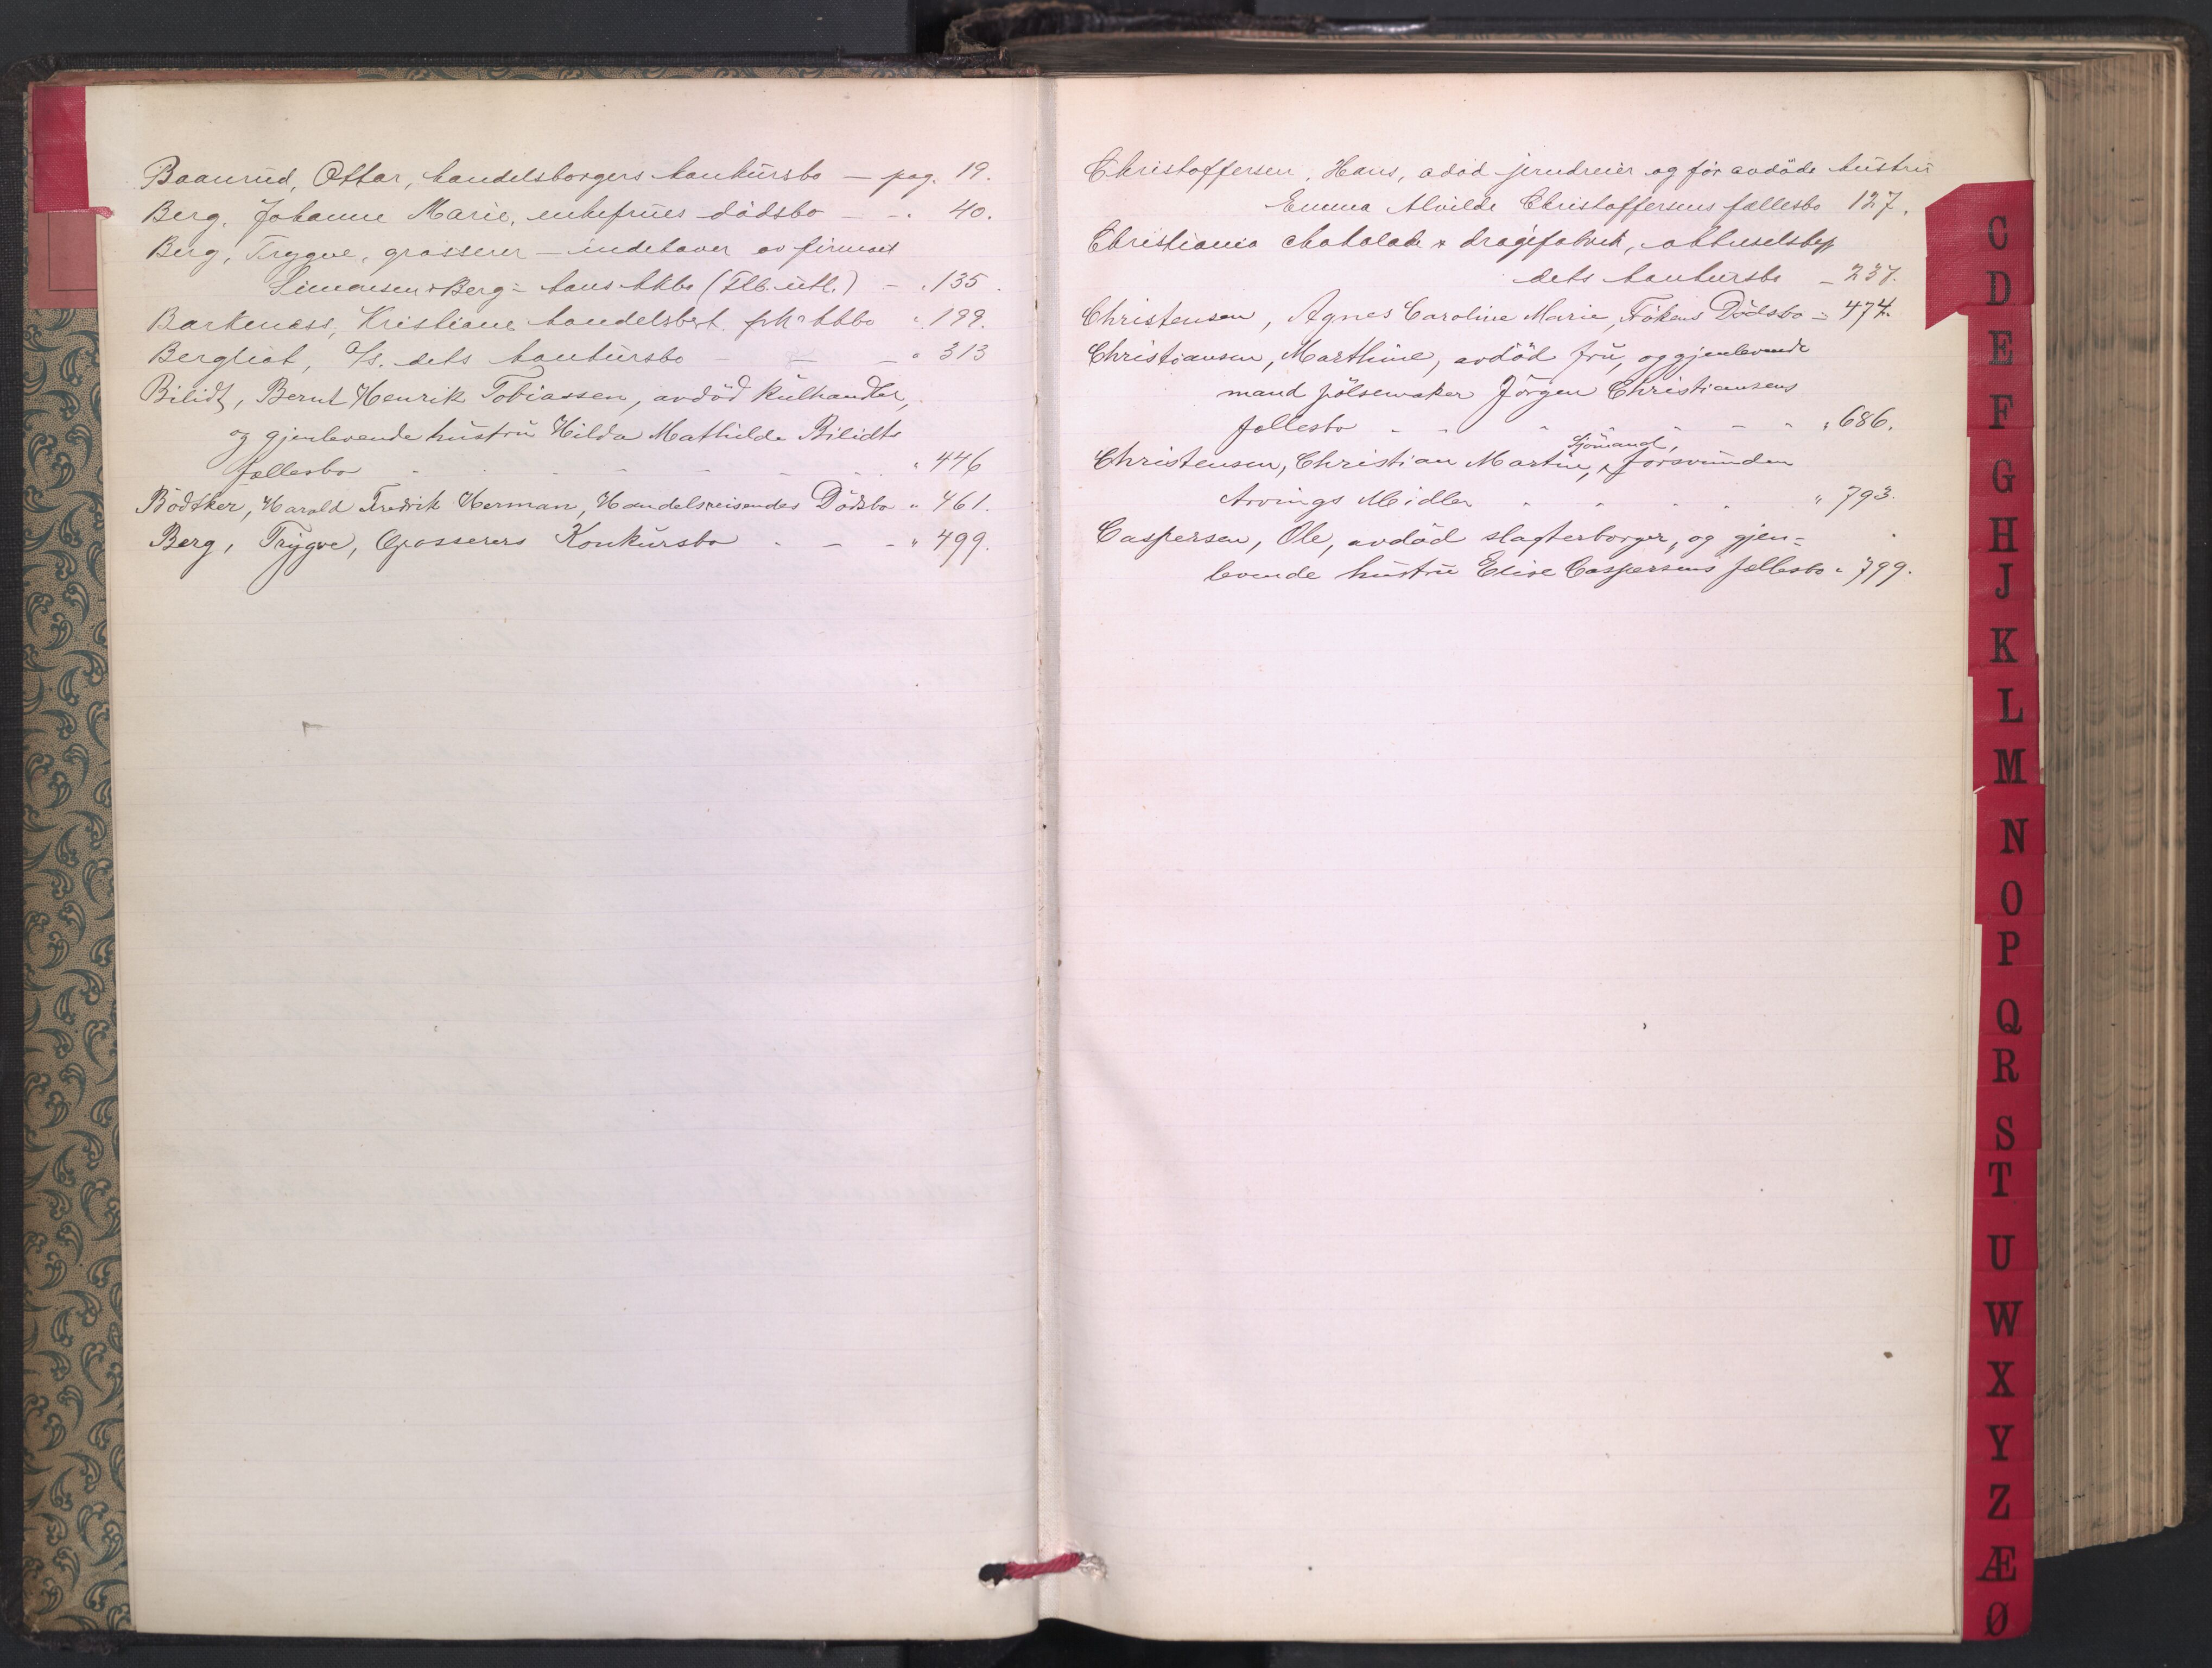 Baanrud, Ottar, handelsborgers konkursbo — pag. 19.
Berg, Johanne Marie, enkefrues dödsbo — - . 40.
Berg, Trygve, grosserer — indehaver av firmaet
Simonsen & Berg - hans kkbo (Flb. utl.) - . 135.
Barkenæss, Kristiane handelsbest. kkbo " 199.
Bergliot, A/s. dets konkursbo - — - " 313
Bilidt, Bernt Henrik Tobiassen, avdöd kulhandler,
og gjenlevende hustru Hilda Mathilde Bilidts
fællesbo " 446
Bödtker, Harald Fredrik Herman, Handelsreisendes Dödsbo " 461.
Berg, Trygve, Grosserers Konkursbo - - - " 499.
Christoffersen, Hans, adöd jerndreier og før avdöde hustru
Emma Alvilde Christoffersens fællesbo 127.
Christiania chokolade & dragéfabrik, aktieselskap
dets konkursbo - 237.
Christensen, Agnes Caroline Marie, Frökens Dödsbo - 474.
Christiansen, Marthine, avdöd fru, og gjenlevende
mand pölsemaker Jörgen Christiansens
fællesbo " 686.
Sjömand,
Christensen, Christian Martin, forsvunden
Arvings Midler " 793.
Caspersen, Ole, avdöd slagterborger, og gjen-
levende hustru Elise Caspersens fællesbo " 799.
C
D
E
F
G
H
J
K
L
M
N
O
P
Q
R
S
T
U
W
X
Y
Z
Æ
Ø